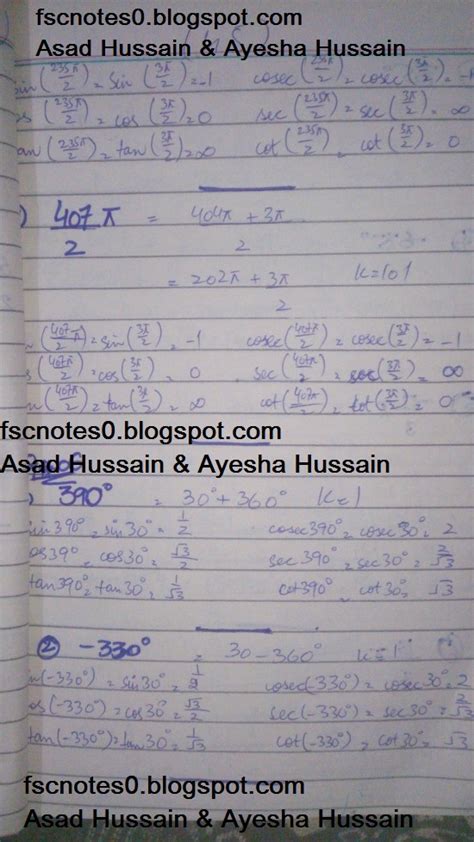 fscnotes0.blogspot.com
Asad Hussain & Ayesha Hussain
sin(235π/2) = sin(3π/2) = -1 cosec(235π/2) = cosec(3π/2) = -1
cos(235π/2) = cos(3π/2) = 0 sec(235π/2) = sec(3π/2) = ∞
tan(235π/2) = tan(3π/2) = ∞ cot(235π/2) = cot(3π/2) = 0
) 407π/2 = 404π + 3π/2
= 202π + 3π/2 K=101
(407π/2) = sin(3π/2) = -1 cosec(407π/2) = cosec(3π/2) = -1
s(407π/2) = cos(3π/2) = 0 sec(407π/2) = sec(3π/2) = ∞
n(407π/2) = tan(3π/2) = ∞ cot(407π/2) = cot(3π/2) = 0
fscnotes0.blogspot.com
Asad Hussain & Ayesha Hussain
) 390° = 30° + 360° K=1
sin390° = sin30° = 1/2 cosec390° = cosec30° = 2
cos39° = cos30° = √3/2 sec390° = sec30° = 2/√3
tan390° = tan30° = 1/√3 cot390° = cot30° = √3
② -330° = 30 - 360° K=1
n(-330°) = sin30° = 1/2 cosec(-330°) = cosec30° = 2
os(-330°) = cos30° = √3/2 sec(-330°) = sec30° = 2/√3
tan(-330°) = tan30° = 1/√3 cot(-330°) = cot30° = √3
fscnotes0.blogspot.com
Asad Hussain & Ayesha Hussain